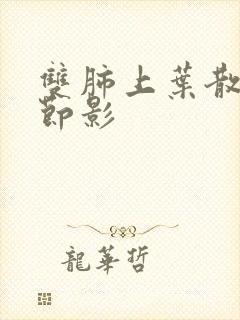 雙肺上葉散
節影
龍華哲